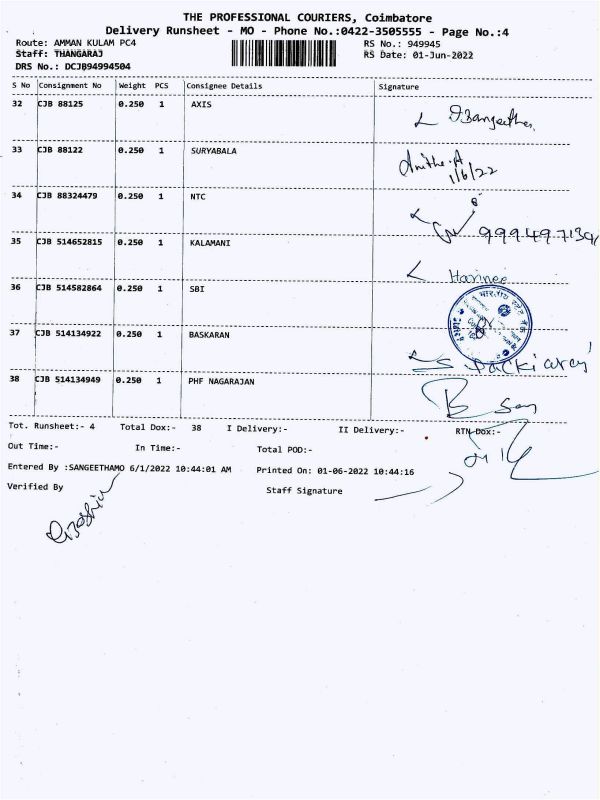 THE PROFESSIONAL COURIERS, Coimbatore
Delivery Runsheet - MO - Phone No.:0422-3505555 - Page No.:4
Route: AMMAN KULAM PC4 RS No.: 949945
Staff: THANGARAJ RS Date: 01-Jun-2022
DRS No.: DCJB94994504
S No Consignment No Weight PCS Consignee Details Signature
32 CJB 88125 0.250 1 AXIS
33 CJB 88122 0.250 1 SURYABALA
Anitha.A
1/6/22
34 CJB 88324479 0.250 1 NTC
35 CJB 514652815 0.250 1 KALAMANI
Harinee
36 CJB 514582864 0.250 1 SBI
37 CJB 514134922 0.250 1 BASKARAN
38 CJB 514134949 0.250 1 PHF NAGARAJAN
Tot. Runsheet:- 4 Total Dox:- 38 I Delivery:- II Delivery:- RTN Dox:-
Out Time:- In Time:- Total POD:-
Entered By :SANGEETHAMO 6/1/2022 10:44:01 AM Printed On: 01-06-2022 10:44:16
Verified By Staff Signature